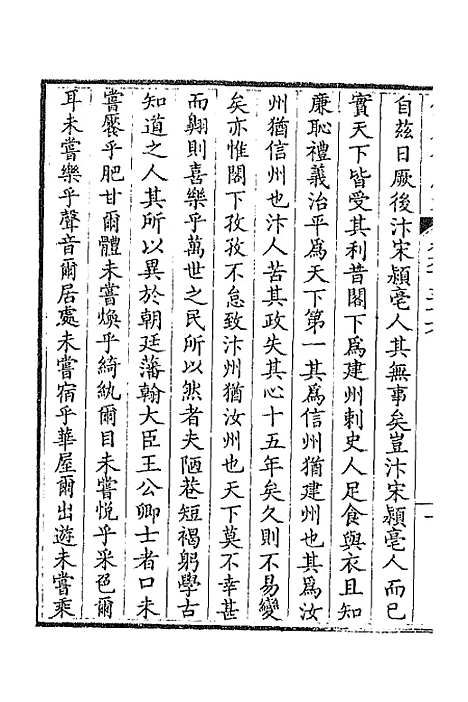 自茲日厥後汴宋潁亳人其無事矣豈汴宋潁亳人而已
實天下皆受其利昔閣下爲建州刺史人足食與衣且知
廉恥禮義治平爲天下第一其爲信州猶建州也其爲汝
州猶信州也汴人苦其政失其心十五年矣久則不易變
矣亦惟閣下孜孜不怠致汴州猶汝州也天下莫不幸甚
而翱則喜樂乎萬世之民所以然者夫陋巷短褐躬學古
知道之人其所以異於朝廷藩翰大臣王公卿士者口未
嘗饜乎肥甘爾體未嘗煥乎綺紈爾目未嘗悅乎采色爾
耳未嘗樂乎聲音爾居處未嘗宿乎華屋爾出遊未嘗乘